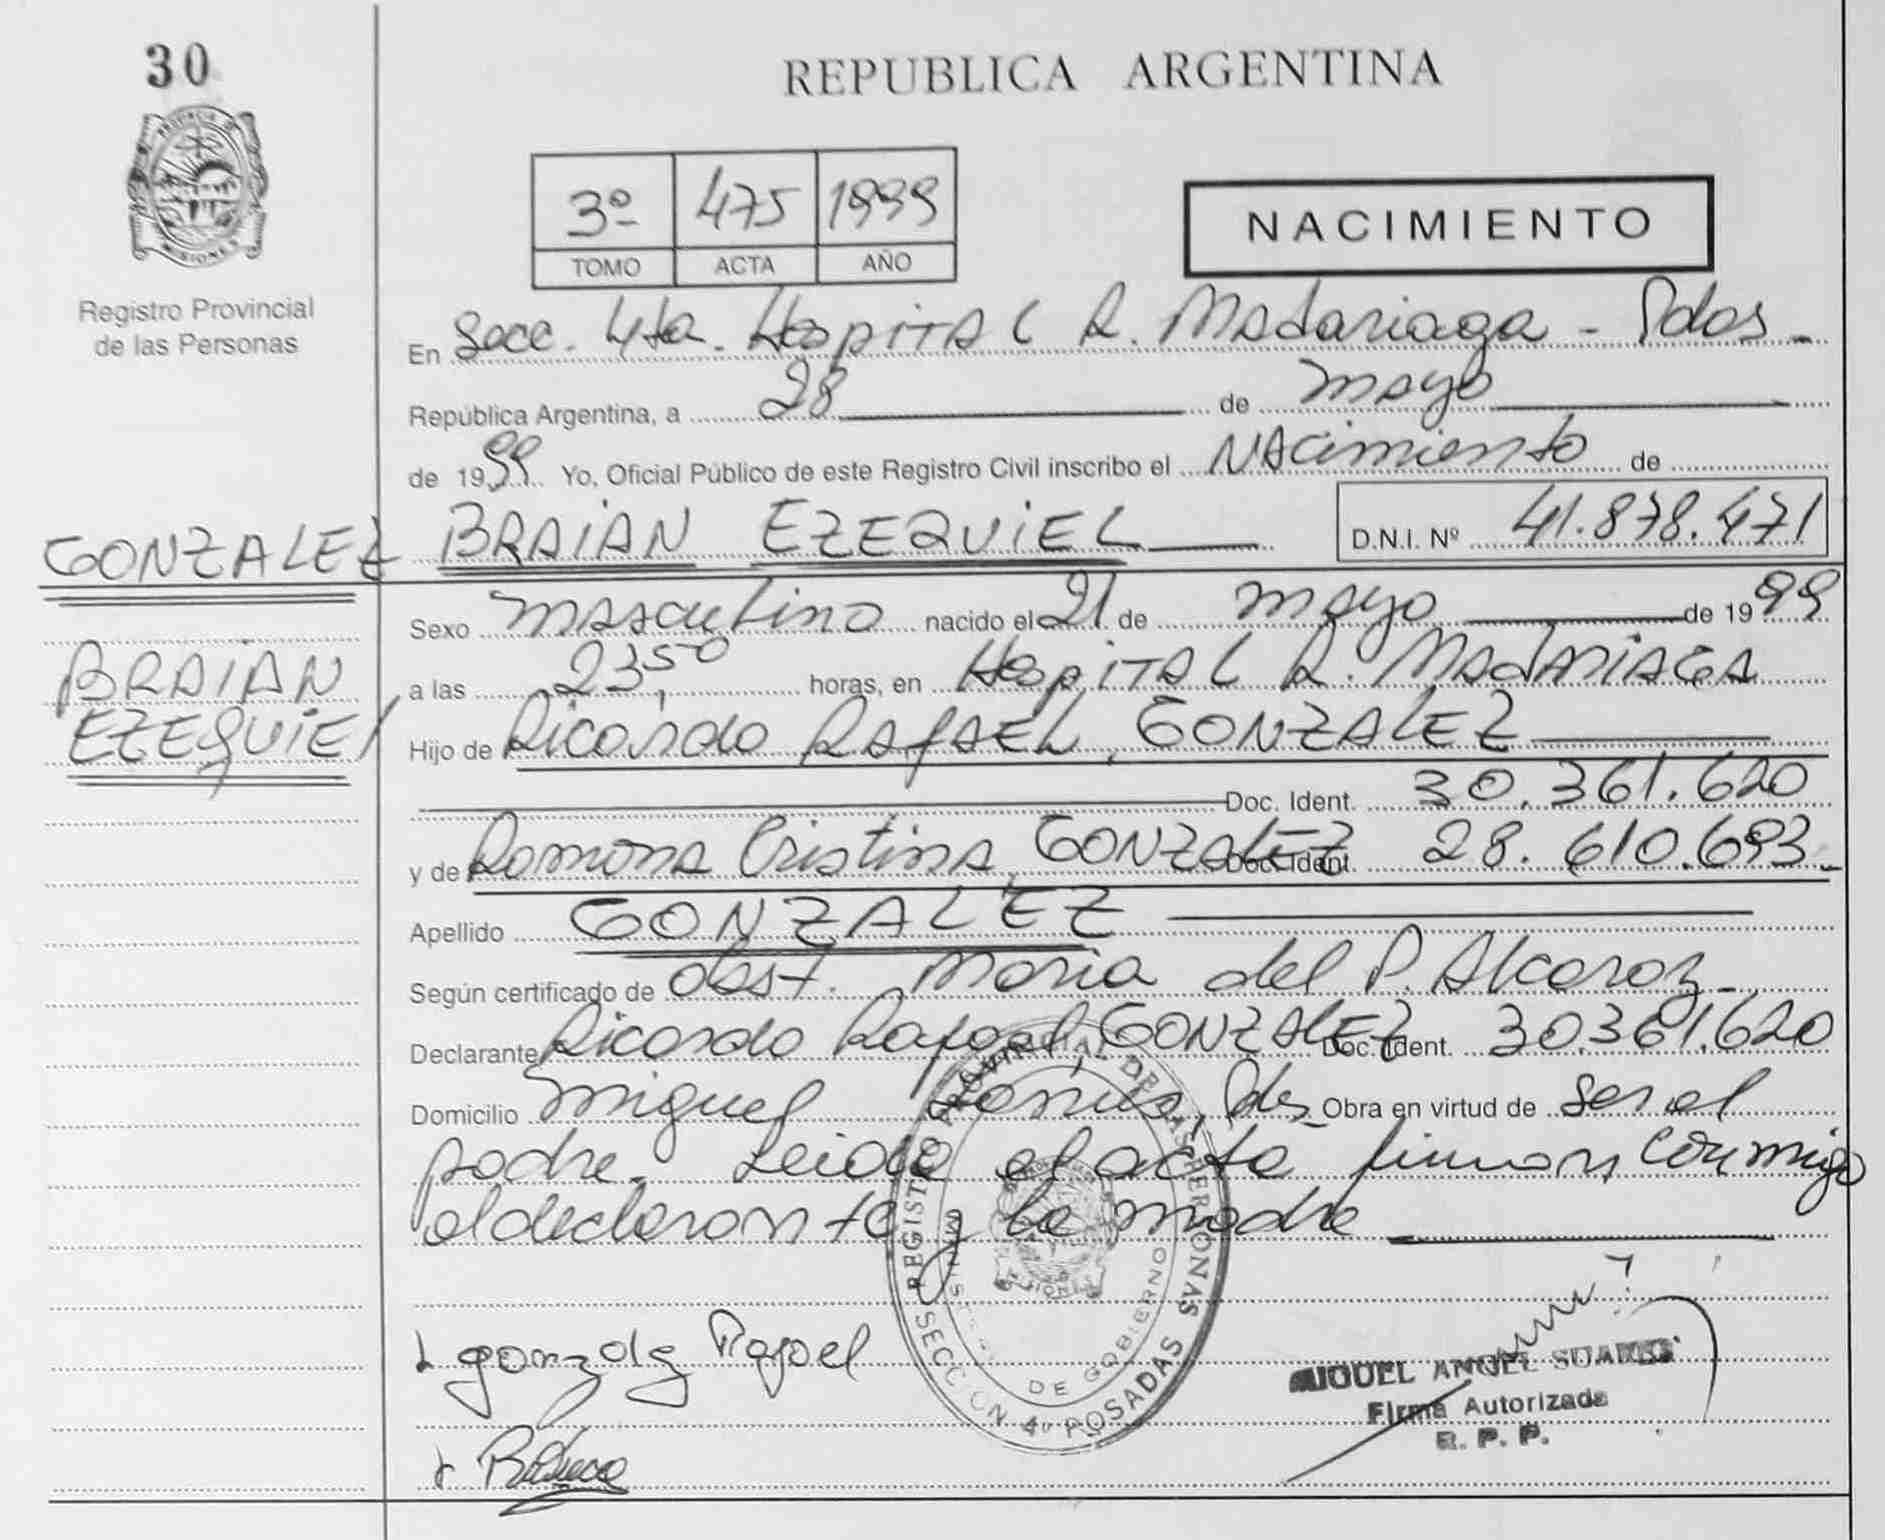 30
REPUBLICA ARGENTINA
3º 475 1999
TOMO ACTA AÑO
NACIMIENTO
PROVINCIA DE MISIONES
Registro Provincial
de las Personas
En Secc. 4ta. Hospital R. Madariaga - Pdas -
República Argentina, a 28 de mayo
de 1999 Yo, Oficial Público de este Registro Civil inscribo el Nacimiento de
GONZALEZ BRAIAN EZEQUIEL D.N.I. Nº 41.878.471
BRAIAN
EZEQUIEL
Sexo masculino nacido el 21 de mayo de 1999
a las 23,50 horas, en Hospital R. Madariaga
Hijo de Ricardo Rafael, GONZALEZ
Doc. Ident. 30.361.620
y de Ramona Cristina, GONZALEZ Doc. Ident. 28.610.693-
Apellido GONZALEZ
Según certificado de obst. Maria del P. Alcaraz-
Declarante Ricardo Rafael, GONZALEZ Doc. Ident. 30.361.620
Domicilio Miguel Lanús, Pdas Obra en virtud de ser el
padre. Leida el acta firman conmigo
el declarante y la madre
REGISTRO PROVINCIAL DE LAS PERSONAS
SECCION 4º POSADAS
DE GOBIERNO
gonzalez Rafael
MIGUEL ANGEL SUAREZ
Firma Autorizada
R. P. P.